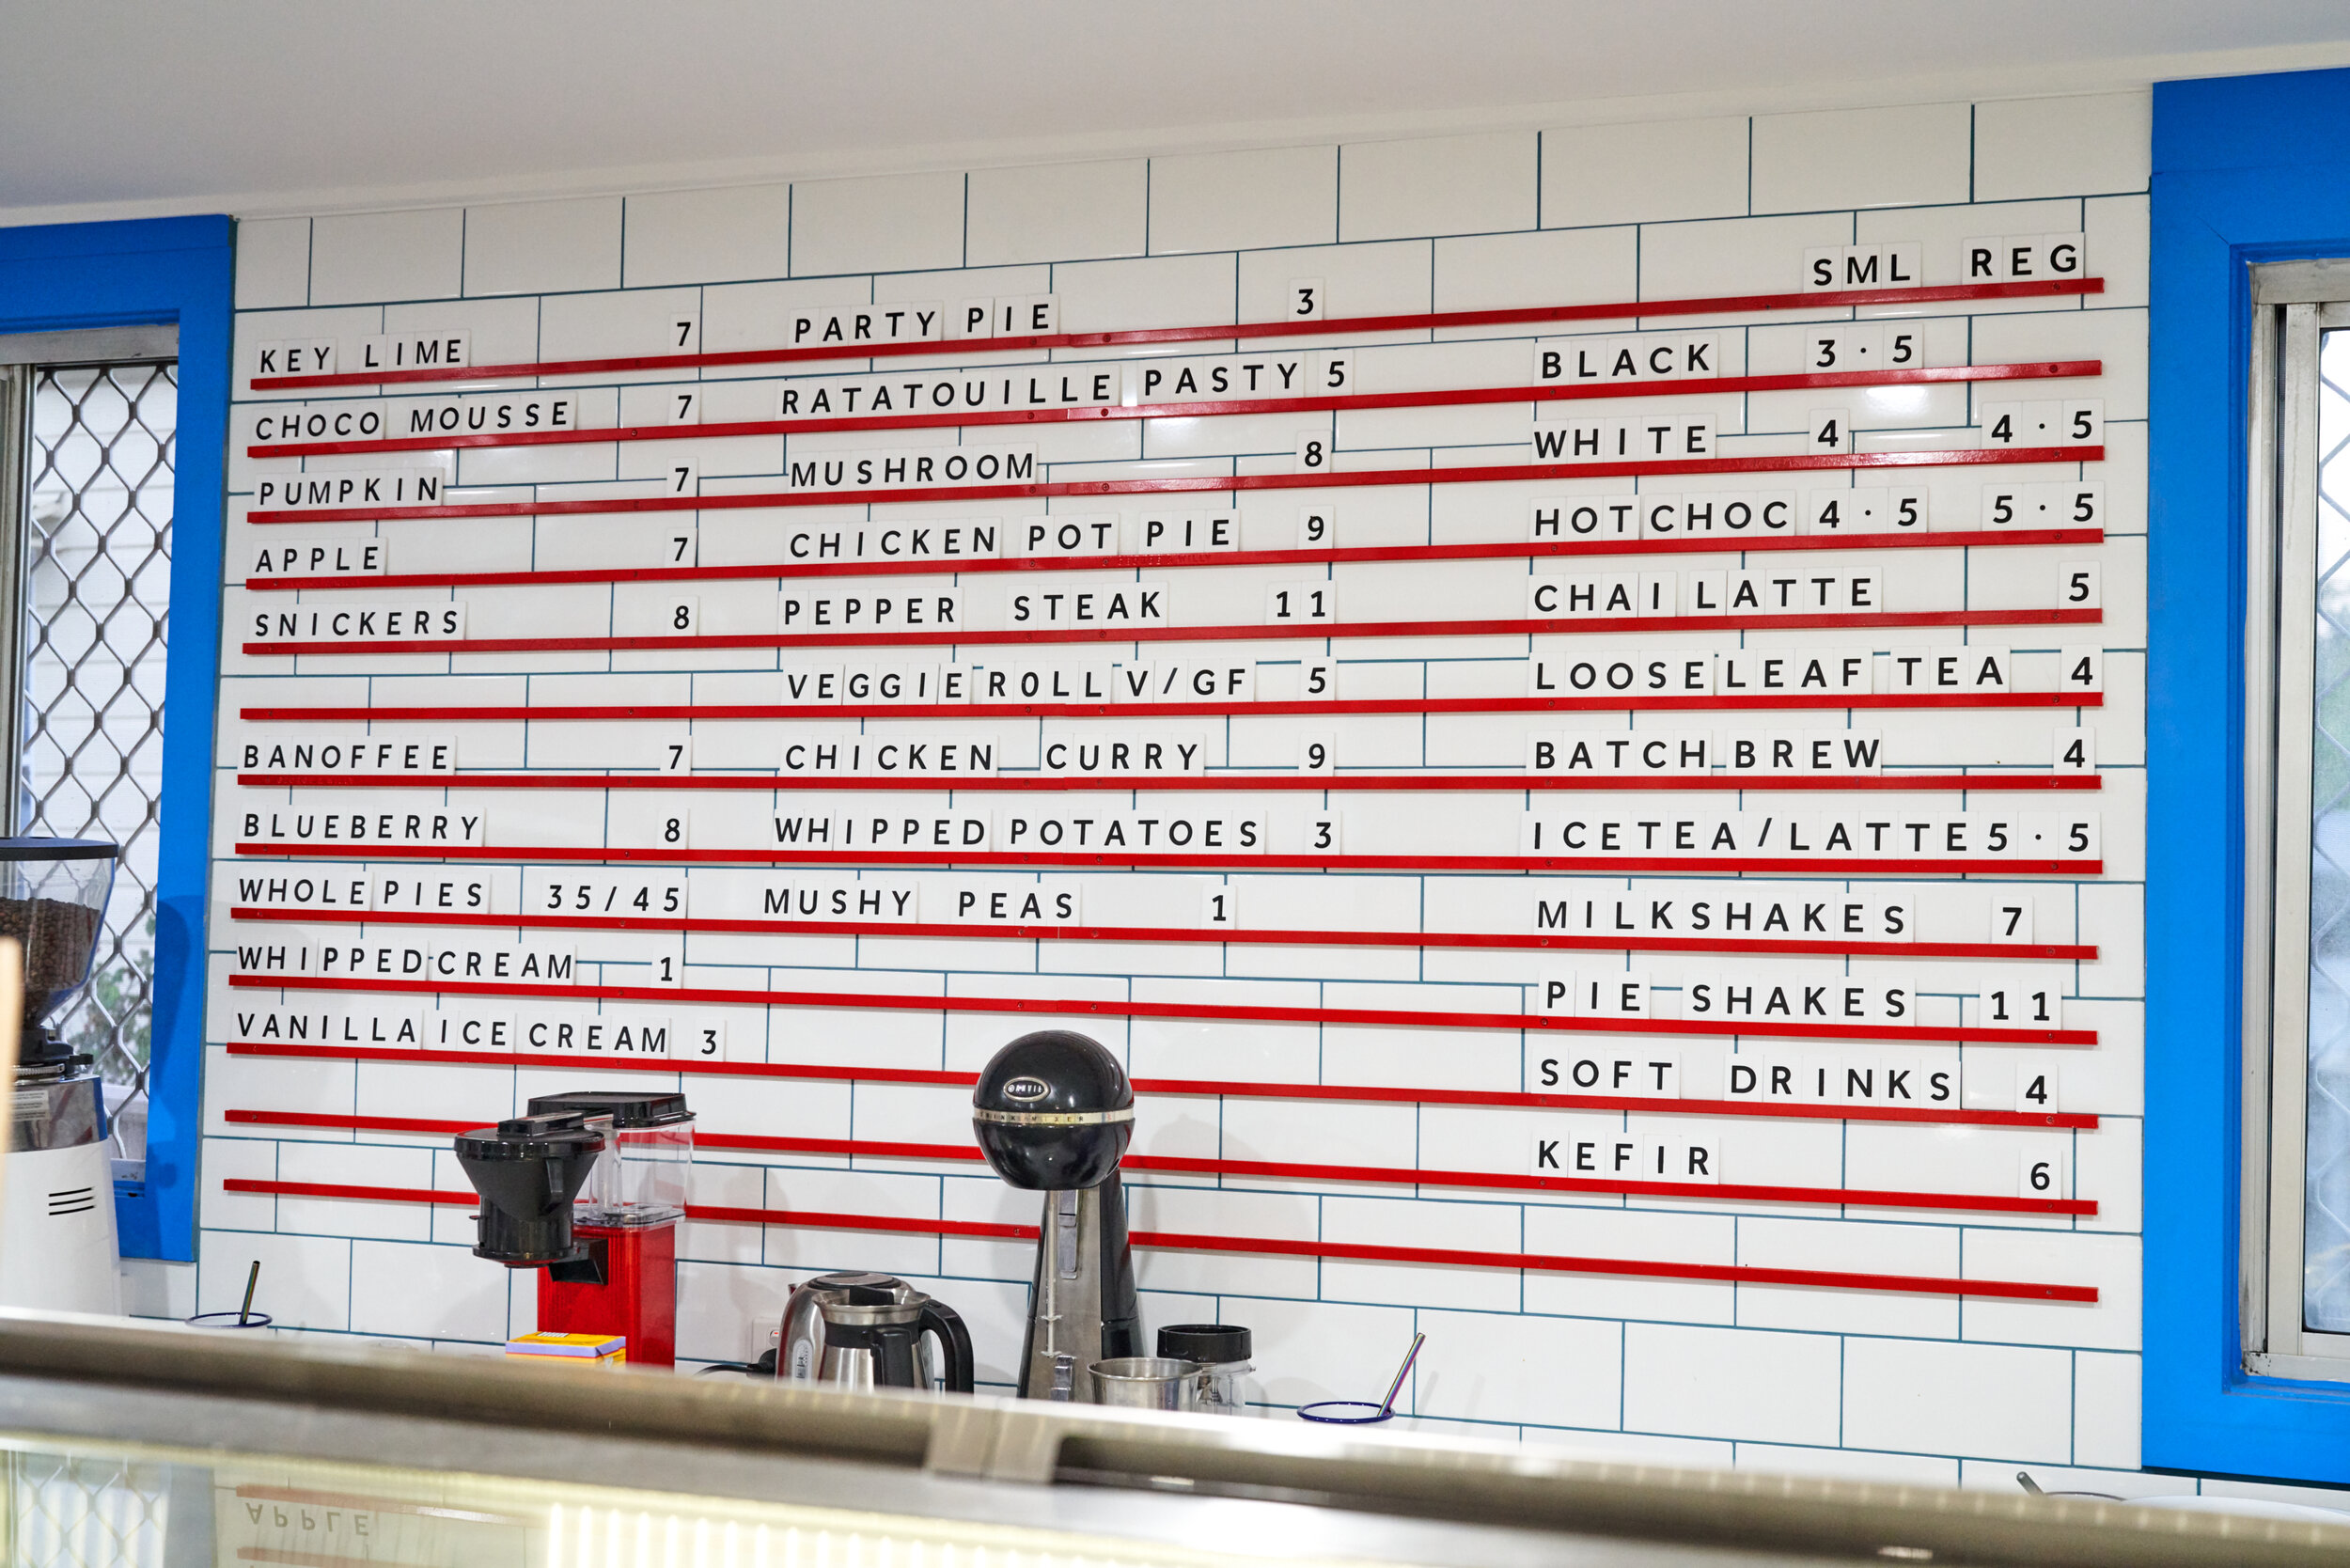 KEY LIME 7
CHOCO MOUSSE 7
PUMPKIN 7
APPLE 7
SNICKERS 8
BANOFFEE 7
BLUEBERRY 8
WHOLE PIES 35/45
WHIPPED CREAM 1
VANILLA ICE CREAM 3
PARTY PIE 3
RATATOUILLE PASTY 5
MUSHROOM 8
CHICKEN POT PIE 9
PEPPER STEAK 11
VEGGIE ROLL V/GF 5
CHICKEN CURRY 9
WHIPPED POTATOES 3
MUSHY PEAS 1
SML REG
BLACK 3·5
WHITE 4 4·5
HOT CHOC 4·5 5·5
CHAI LATTE 5
LOOSE LEAF TEA 4
BATCH BREW 4
ICE TEA/LATTE 5·5
MILKSHAKES 7
PIE SHAKES 11
SOFT DRINKS 4
KEFIR 6
APPLE